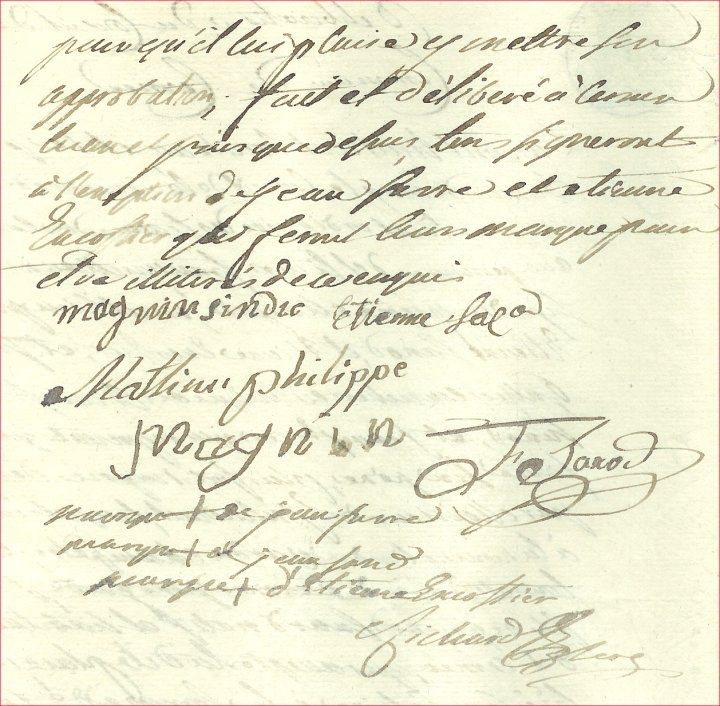 pour qu'il lui plaise y mettre son
approbation, fait et déliberé à
lan et jour que desus tous signeront
à l'exeption de jean ferre et etienne
Encottier qui feront leurs marque pour
etre illitirés de ce enquis
magnin sindic etienne
Mathieu philippe
magnin
marque + de jean ferre
marque + de jean
marque + d'etiene Encottier
Richard